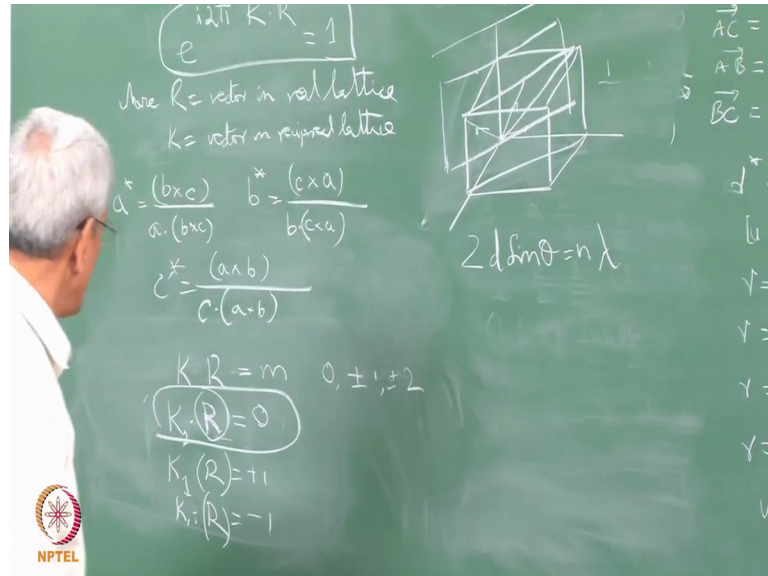 e^{i2π K·R} = 1
R = vector in real lattice
K = vector in reciprocal lattice
a* = (b×c) / a·(b×c)    b* = (c×a) / b·(c×a)
c* = (a×b) / c·(a×b)
K R = m    0, ±1, ±2
K₁·(R) = 0
K₁(R) = +1
K₁·(R) = -1
2d Sinθ = nλ
AC =
AB =
BC =
d*
[u
r =
r =
r =
r =
NPTEL